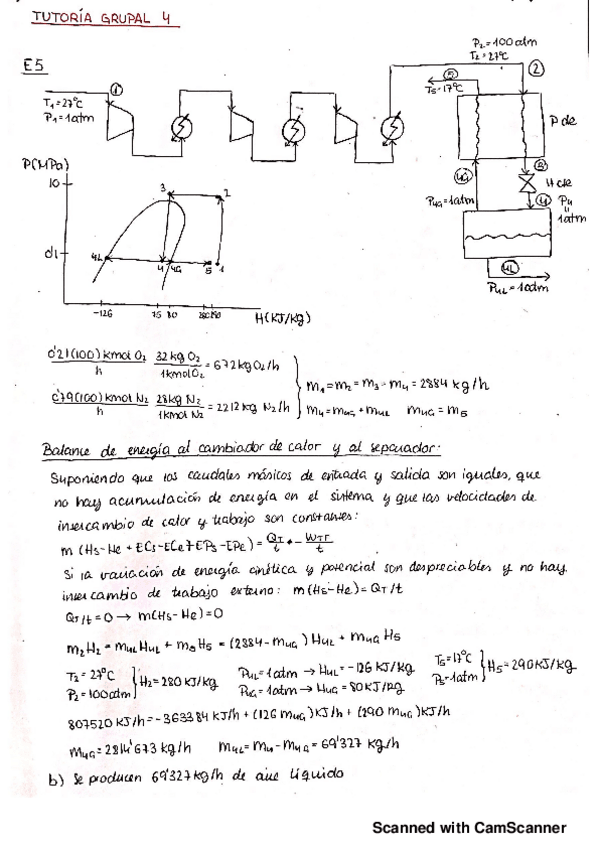 TUTORÍA GRUPAL 4
P₂=100atm
T₂=27ºC
E5
①
②
⑤
T₅=17ºC
T₁=27ºC
P₁=1atm
P cte
P(MPa)
③
H cte
4G
P4G=1atm
④ P4
1atm
10
3
2
0'1
4L
4
4G
5
1
4L
P4L=1atm
-126
75 80
H(KJ/Kg)
0'21(100) kmol O₂ / h · 32 kg O₂ / 1kmol O₂ = 672 kg O₂/h
m₁=m₂=m₃=m₄=2884 kg/h
0'79(100) kmol N₂ / h · 28 kg N₂ / 1kmol N₂ = 2212 kg N₂/h
m₄=m4G+m4L m4G=m₅
Balance de energía al cambiador de calor y al separador:
Suponiendo que los caudales másicos de entrada y salida son iguales, que
no hay acumulación de energía en el sistema y que las velocidades de
intercambio de calor y trabajo son constantes:
m (Hs-He + ECs-ECe+EPs-EPe) = QT/t + - WTF/t
Si la variación de energía cinética y potencial son despreciables y no hay
intercambio de trabajo externo: m(Hs-He)=QT/t
QT/t=0 → m(Hs-He)=0
m₂H₂=m4LH4L + m₅H₅ = (2884-m4G) H4L + m4G H₅
T₂=27ºC
P₂=100atm } H₂=280 kJ/kg
P4L=1atm → H4L=-126 KJ/Kg
P4G=1atm → H4G=80KJ/Kg
T₅=17ºC
P₅=1atm } H₅=290KJ/Kg
807520 KJ/h=-363384 KJ/h + (126 m4G) KJ/h + (290 m4G) KJ/h
m4G=2814'673 kg/h m4L=m4-m4G=69'327 kg/h
b) Se producen 69'327kg/h de aire líquido
Scanned with CamScanner